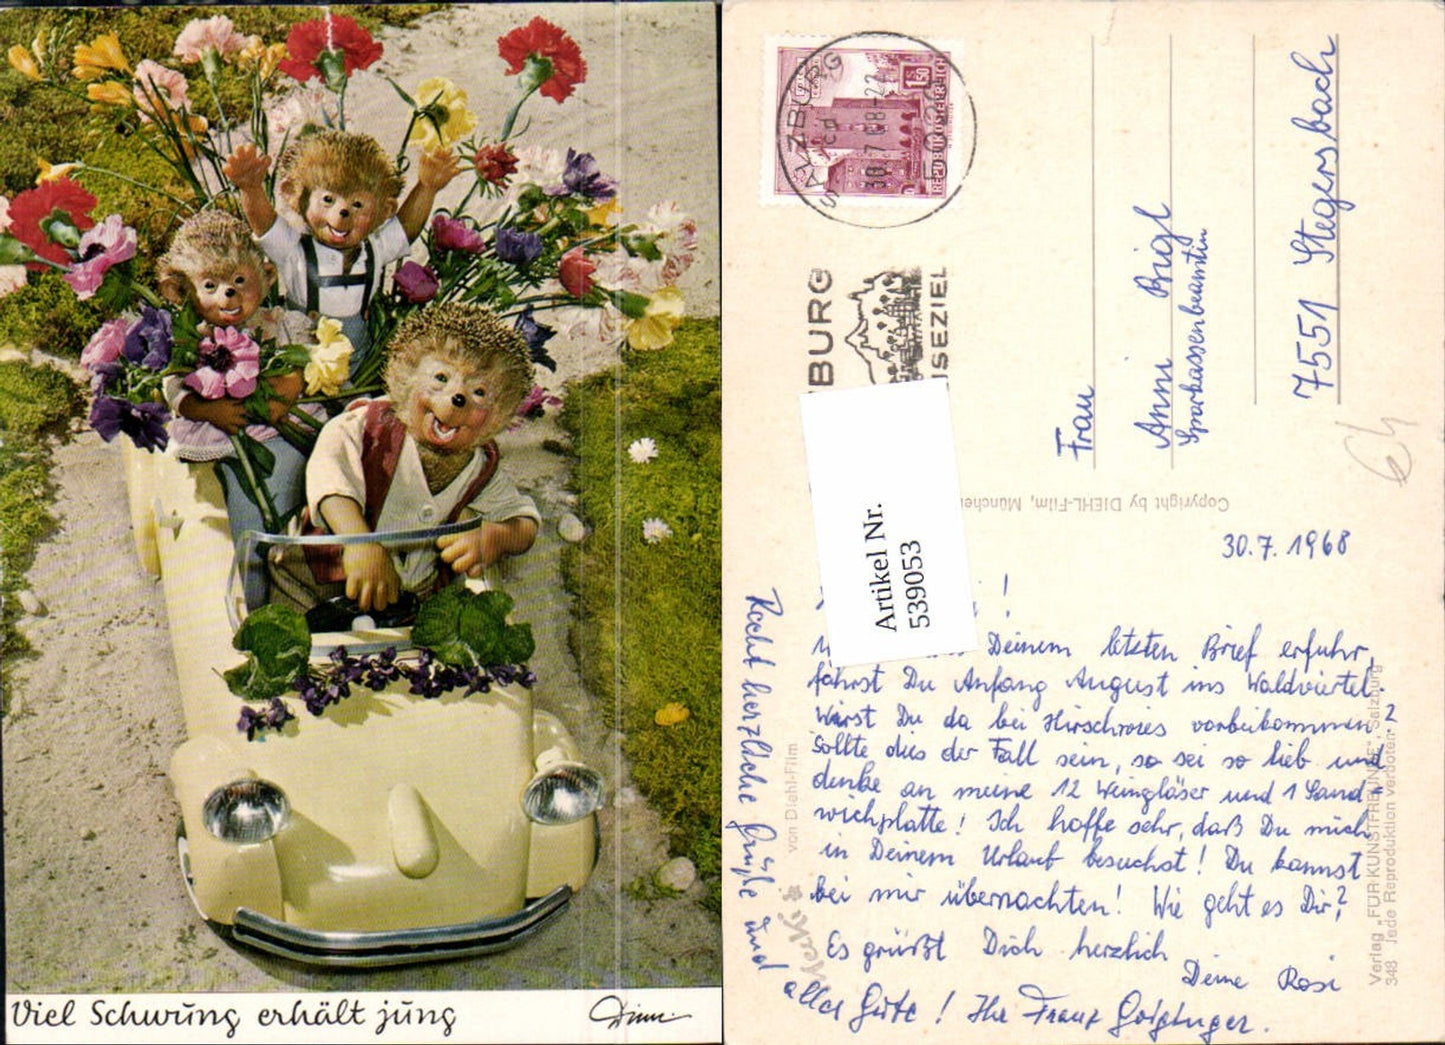 Viel Schwung erhält jung
Diehl
SALZBURG
cd
30.7.68-22
5020
REPUBLIK ÖSTERREICH
1.50
BURG
ISEZIEL
Artikel Nr.
539053
Frau
Anni Bigl
Sparkassenbeamtin
7551 Stegersbach
Copyright by DIEHL-Film, München
30.7.1968
!
Deinem letzten Brief erfuhr,
fährst Du Anfang August ins Waldviertel.
Wirst Du da bei Hirschwies vorbeikommen?
Sollte dies der Fall sein, so sei so lieb und
denke an meine 12 Weingläser und 1 Sand-
wichplatte! Ich hoffe sehr, daß Du mich
in Deinem Urlaub besuchst! Du kannst
bei mir übernachten! Wie geht es Dir?
Es grüßt Dich herzlich
Deine Rosi
Recht herzliche Grüße und
alles Gute! Ihr Franz
von Diehl-Film
Verlag „FÜR KUNSTFREUNDE", Salzburg
348 Jede Reproduktion verboten